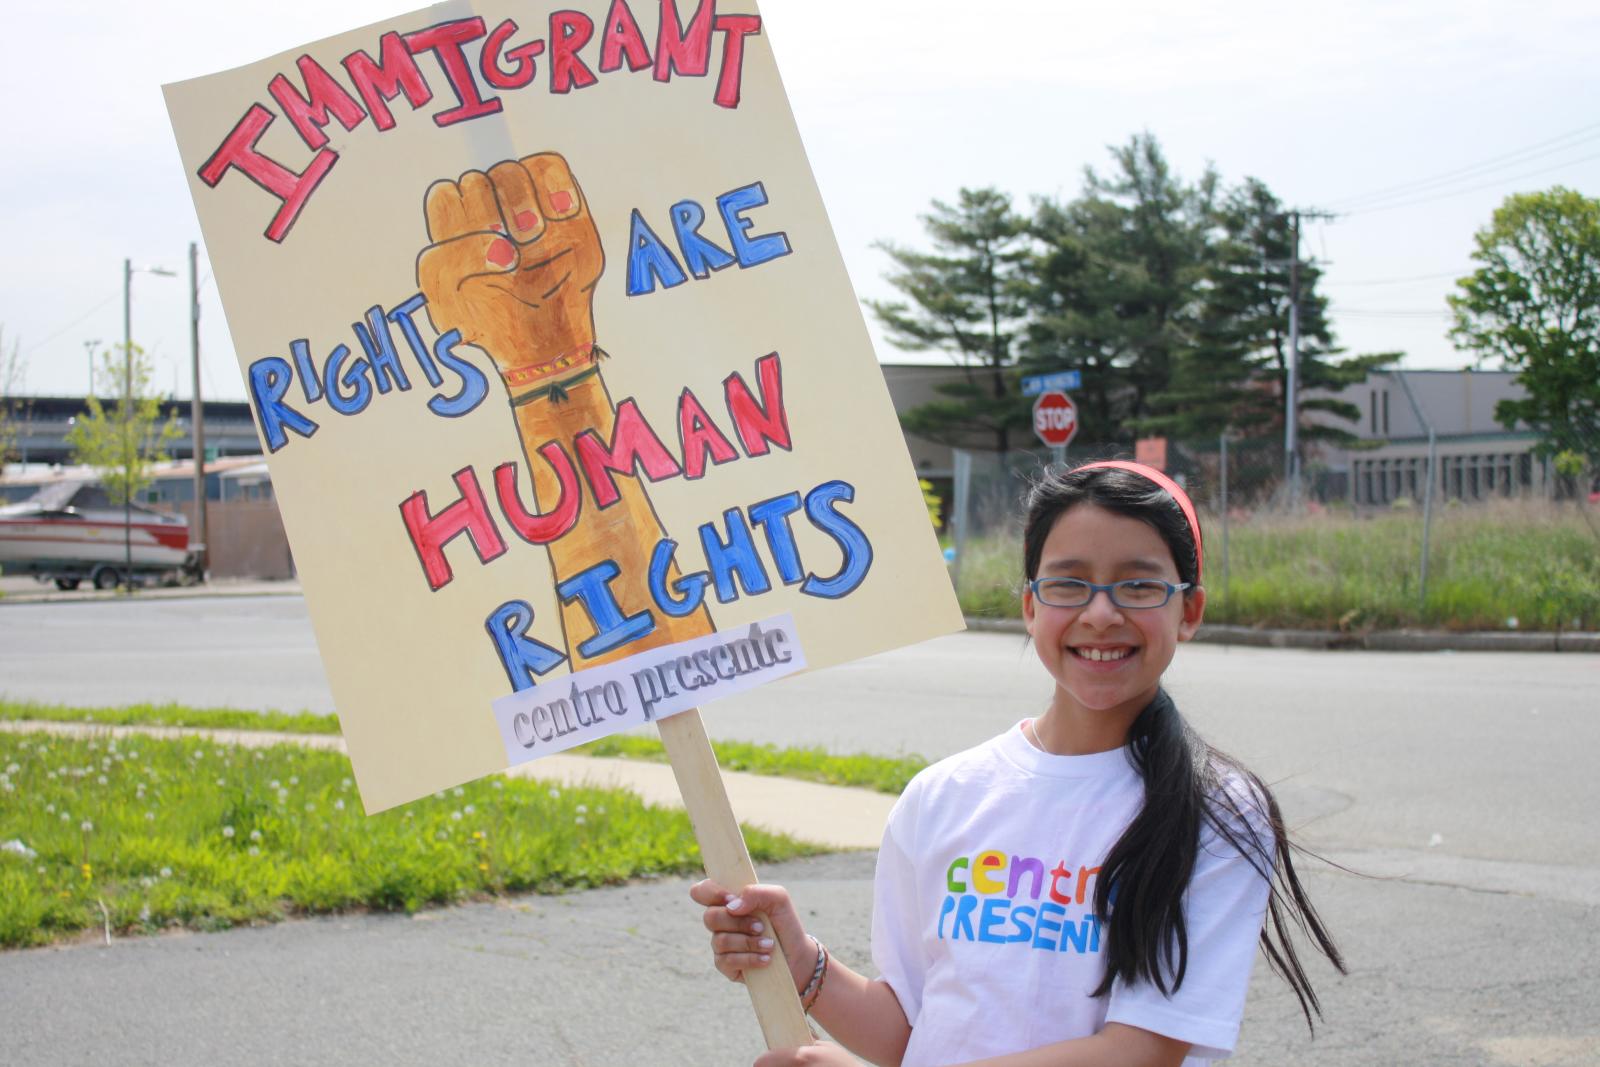 IMMIGRANT
RIGHTS ARE
HUMAN
RIGHTS
centro presente
STOP
centr
PRESENT